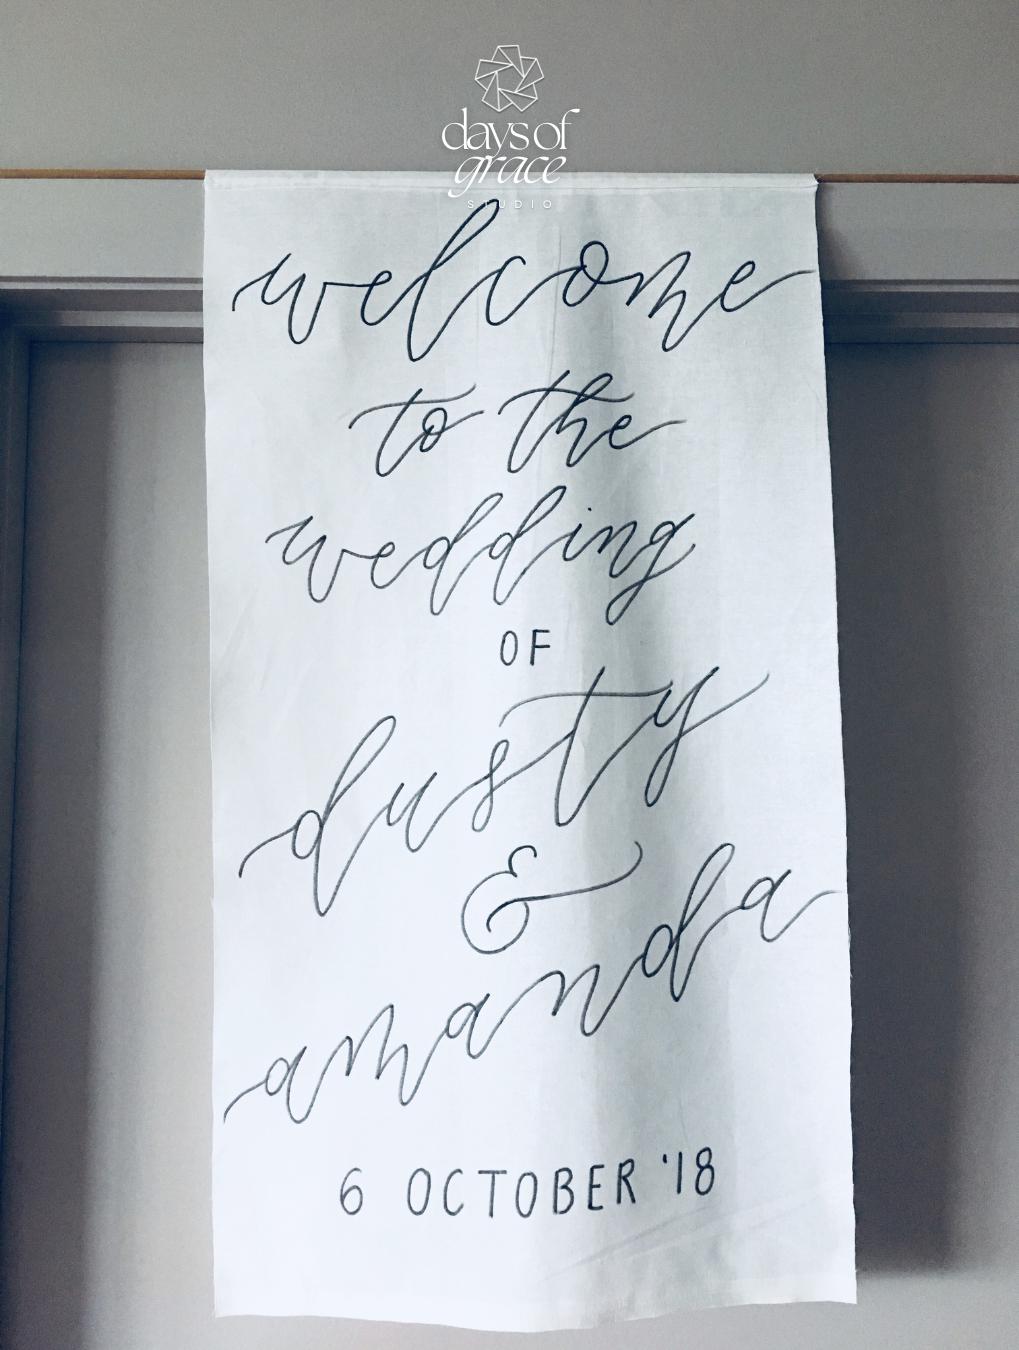 days of
grace
STUDIO
welcome
to the
wedding
OF
dusty
&
amanda
6 OCTOBER '18